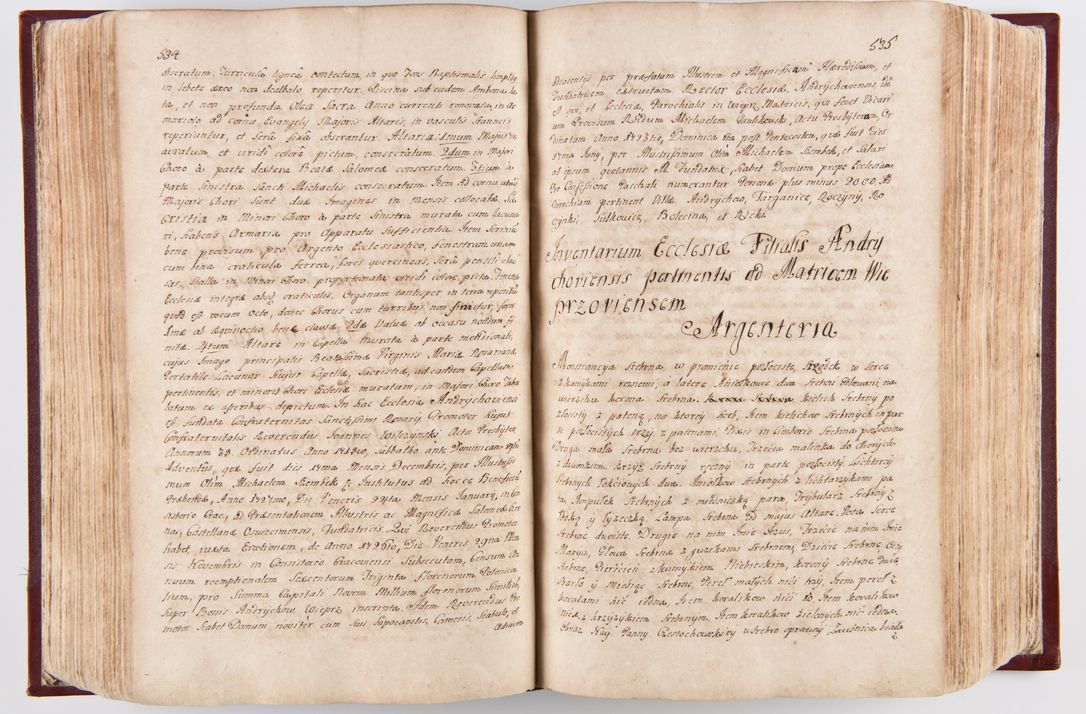 534
obseratum. Turricula lignea contectum, in quo Fons Baptismalis limpidus
in lebete æreo non dealbato reperitur. Piscina sub eadem Ambona loca
ta, et non profunda. Olea Sacra Anno currenti renovata, in Ar
mariolo ad cornu Evangely Majoris Altaris, in vasculis stanneis
reperiuntur, et serâ fixâ obserantur. Altaria 1mum Majus in
auratum et viridi colore pictum, consecratum. 2dum in Majori
Choro à parte dextera Beatæ Salomeæ consecratum. 3tium à
parte sinistra Sancti Michaelis consecratum. Item ad cornu utrumq
Majoris Chori sunt duæ Imagines in mensis collocatæ. Sa
cristia in Minori Choro à parte sinistra murata cum lacuna
ri, habens Armaria pro Apparatu sufficientia. Item Scrinium
bene provisum pro Argento Ecclesiastico, fenestram unam
cum una craticula ferrea, fores quercineas, serâ pensili clau
sas, Stalla in Minori Choro proportionata viridi colore picta. Fenestræ
Ecclesiæ integræ absq craticulis. Organum tantisper in terra repositum
quod est vocum octo, donec Chorus cum turribus non finietur, fores
1mæ ab Æquinoctio, bene clausæ 2dæ Valvæ ab occasu nondum fi
nitæ. 4tum Altare in Capella murata à parte meridionali,
cujus Imago principalis Beatissimæ Virginis Mariæ
Portatile Lacunar hujus Capellæ, Sacristiæ, ad eandem Capellam
pertinentis, et minoris Chori Ecclesiæ muratum, in Majori Choro Tabu
latum ex asseribus depictum. In hac Ecclesia Andrychoviensi
est fundata Confraternitas Sanctissimi Rosarij Promotor hujus
Confraternitatis Reverendus Joannes Wilczynski Actu Presbyter,
Annorum 33. Ordinatus Anno 1718vo, Sabbatho ante Dominicam
Adventus, quæ fuit dies 17ma Mensis Decembris, per Illustrissi
mum Olim Michaelem Szembek Institutus ad hocce Beneficium
Præbendæ, Anno 1727mo, Die Veneris 24ta Mensis January, in Con
sistorio Crac. ad Præsentationem Illustris ac Magnificæ Salomeæ
na, Castellanæ Oswecimensis, Fundatricis. Qui Reverendus Promotor
habet juxta Erectionem, de Anno 1726to, Die Veneris 29na Men
sis Novembris in Consistorio Cracoviensi subsecutam, Censum An
nuum reemptionalem Sexcentorum Triginta Florenorum Polonica
lium, pro Summa Capitali Novem Millium florenorum similium
super Bonis Andrychow Wieprz inscripta. Idem Reverendus Pro
motor habet Domum noviter cum suis hipocaustis, Cameris, Stabulo, et
535
adjacentijs per præfatam Illustrem et Magnificam Hæredissam, et
Fundatricem extructam. Rector Ecclesiæ Andrychoviensis, id
est qui et Ecclesiæ Parochialis in Wieprz Matricis, qui fovet Vicari
um Provisum Rdum Michaelem Pawlikowski, Actu Presbyterum, Or
dinatum Anno 1723tio, Dominica post Pentecosten, quæ fuit dies
Juny, per Illustrissimum Olim Michaelem Szembek, et Salari
at ipsum quotannis Fundatrix, habet Domum prope Ecclesiam.
Pro Confessione Paschali numerantur Personæ plus minus 2000. Ad
Parochiam pertinent Villæ Andrychow, Targanice, Roczyny, Ro
czynki, Sulkowice, Bolecina, et Rzeki
Inventarium Ecclesiæ Filialis Andry
choviensis pertinentis ad Matricem Wie
przoviensem
Argenteria
Monstrancya srebrna w promienie pozłocista, szrodek w serce
z kamykami rożnemi, à latere Aniołkowie dwa srebrni odlewani, na
wierzchu korona srebrna. kielich srebrny po
złocisty z pateną, na ktorey herb, Item kielichow srebrnych in par
te pozłocistych trzy, z patenami, Puszka in Ciborio srebrna pozłocista
Druga mała srebrna bez wierzchu, Trzecia malinka do chorych
z dzwonkiem. Krzyż srebrny ręczny in parte pozłocisty, Lichtarzy
srebrnych łokciowych dwa. Aniołkow srebrnych z lichtarzykami pa
ra, Ampułek srebrnych z miedniczką para, Trybularz srebrny z
łodką y łyzeczką. Lampa srebrna ad majus Altare. Vota serce
srebrne dwoiste. Drugie na nim Imie Jezus, Trzecie na nim Imie
Marya, Głowa srebrna z guzikami srebrnemi, Dziecie srebrne
srebrne, Pierścien z kamykiem Niebieskim, korony srebrne dwie
Berło y miesiąc srebrne, Pereł małych nici trzy, Item pereł z
koralami nić iedna, Item koralikow nici 20. Item koralikow
nić z krzyzykiem srebrnym, Item koralikow zielonych nić iedna.
Obraz Nayś. Panny Częstochowskiey w srebro oprawny Zausnica biała